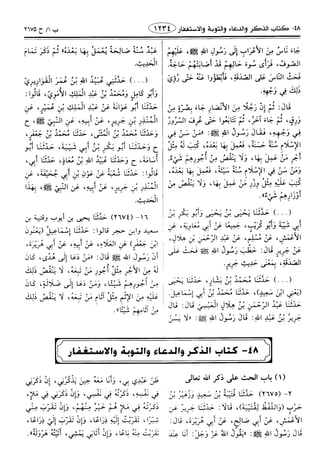 ٤٨- كتاب الذكر والدعاء والتوبة والاستغفار
١٢٣٤
ب ١/ ح ٢٦٧٥
جَاءَ نَاسٌ مِنَ الْأَعْرَابِ إِلَى رَسُولِ اللهِ ﷺ، عَلَيْهِمُ
الصُّوفُ، فَرَأَى سُوءَ حَالِهِمْ قَدْ أَصَابَتْهُمْ حَاجَةٌ.
فَحَثَّ النَّاسَ عَلَى الصَّدَقَةِ، فَأَبْطَؤُوا عَنْهُ حَتَّى رُؤِيَ
ذَلِكَ فِي وَجْهِهِ.
قَالَ: ثُمَّ إِنَّ رَجُلًا مِنَ الْأَنْصَارِ جَاءَ بِصُرَّةٍ مِنْ
وَرِقٍ، ثُمَّ جَاءَ آخَرُ، ثُمَّ تَتَابَعُوا حَتَّى عُرِفَ السُّرُورُ
فِي وَجْهِهِ، فَقَالَ رَسُولُ اللهِ ﷺ: «مَنْ سَنَّ فِي
الْإِسْلَامِ سُنَّةً حَسَنَةً، فَعُمِلَ بِهَا بَعْدَهُ، كُتِبَ لَهُ مِثْلُ
أَجْرِ مَنْ عَمِلَ بِهَا، وَلَا يَنْقُصُ مِنْ أُجُورِهِمْ شَيْءٌ،
وَمَنْ سَنَّ فِي الْإِسْلَامِ سُنَّةً سَيِّئَةً، فَعُمِلَ بِهَا بَعْدَهُ،
كُتِبَ عَلَيْهِ مِثْلُ وِزْرِ مَنْ عَمِلَ بِهَا، وَلَا يَنْقُصُ مِنْ
أَوْزَارِهِمْ شَيْءٌ».
(...) حَدَّثَنَا يَحْيَى بْنُ يَحْيَى وَأَبُو بَكْرِ بْنُ
أَبِي شَيْبَةَ وَأَبُو كُرَيْبٍ، جَمِيعًا عَنْ أَبِي مُعَاوِيَةَ، عَنِ
الْأَعْمَشِ، عَنْ مُسْلِمٍ، عَنْ عَبْدِ الرَّحْمَنِ بْنِ هِلَالٍ،
عَنْ جَرِيرٍ قَالَ: خَطَبَ رَسُولُ اللهِ ﷺ فَحَثَّ عَلَى
الصَّدَقَةِ، بِمَعْنَى حَدِيثِ جَرِيرٍ.
(...) حَدَّثَنَا مُحَمَّدُ بْنُ بَشَّارٍ، حَدَّثَنَا يَحْيَى
(يَعْنِي ابْنَ سَعِيدٍ)، حَدَّثَنَا مُحَمَّدُ بْنُ أَبِي إِسْمَاعِيلَ،
حَدَّثَنَا عَبْدُ الرَّحْمَنِ بْنُ هِلَالٍ الْعَبْسِيُّ قَالَ: قَالَ
جَرِيرُ بْنُ عَبْدِ اللهِ: قَالَ رَسُولُ اللهِ ﷺ: «لَا يَسُنُّ
عَبْدٌ سُنَّةً صَالِحَةً يُعْمَلُ بِهَا بَعْدَهُ» ثُمَّ ذَكَرَ تَمَامَ
الْحَدِيثِ.
(...) حَدَّثَنِي عُبَيْدُ اللهِ بْنُ عُمَرَ الْقَوَارِيرِيُّ
وَأَبُو كَامِلٍ وَمُحَمَّدُ بْنُ عَبْدِ الْمَلِكِ الْأُمَوِيُّ، قَالُوا:
حَدَّثَنَا أَبُو عَوَانَةَ عَنْ عَبْدِ الْمَلِكِ بْنِ عُمَيْرٍ، عَنِ
الْمُنْذِرِ بْنِ جَرِيرٍ، عَنْ أَبِيهِ، عَنِ النَّبِيِّ ﷺ، ح
وَحَدَّثَنَا مُحَمَّدُ بْنُ الْمُثَنَّى، حَدَّثَنَا مُحَمَّدُ بْنُ جَعْفَرٍ،
ح وَحَدَّثَنَا أَبُو بَكْرِ بْنُ أَبِي شَيْبَةَ، حَدَّثَنَا أَبُو
أُسَامَةَ، ح وَحَدَّثَنَا عُبَيْدُ اللهِ بْنُ مُعَاذٍ، حَدَّثَنَا أَبِي،
قَالُوا: حَدَّثَنَا شُعْبَةُ عَنْ عَوْنِ بْنِ أَبِي جُحَيْفَةَ، عَنِ
الْمُنْذِرِ بْنِ جَرِيرٍ، عَنْ أَبِيهِ، عَنِ النَّبِيِّ ﷺ بِهَذَا
الْحَدِيثِ.
١٦- (٢٦٧٤) حَدَّثَنَا يَحْيَى بن أيوب وقتيبة بن
سعيد وابن حجر قالوا: حَدَّثَنَا إِسْمَاعِيلُ (يَعْنُونَ
ابْنَ جَعْفَرٍ) عَنِ الْعَلَاءِ، عَنْ أَبِيهِ، عَنْ أَبِي هُرَيْرَةَ،
أَنَّ رَسُولَ اللهِ ﷺ قَالَ: «مَنْ دَعَا إِلَى هُدًى، كَانَ
لَهُ مِنَ الْأَجْرِ مِثْلُ أُجُورِ مَنْ تَبِعَهُ، لَا يَنْقُصُ ذَلِكَ
مِنْ أُجُورِهِمْ شَيْئًا، وَمَنْ دَعَا إِلَى ضَلَالَةٍ، كَانَ
عَلَيْهِ مِنَ الْإِثْمِ مِثْلُ آثَامِ مَنْ تَبِعَهُ، لَا يَنْقُصُ ذَلِكَ
مِنْ آثَامِهِمْ شَيْئًا».
٤٨- كتاب الذكر والدعاء والتوبة والاستغفار
(١) باب الحث على ذكر الله تعالى
٢- (٢٦٧٥) حَدَّثَنَا قُتَيْبَةُ بْنُ سَعِيدٍ وَزُهَيْرُ بْنُ
حَرْبٍ (وَاللَّفْظُ لِقُتَيْبَةَ)، قَالَا: حَدَّثَنَا جَرِيرٌ عَنِ
الْأَعْمَشِ، عَنْ أَبِي صَالِحٍ، عَنْ أَبِي هُرَيْرَةَ، قَالَ:
قَالَ رَسُولُ اللهِ ﷺ: «يَقُولُ اللهُ عَزَّ وَجَلَّ: أَنَا عِنْدَ
ظَنِّ عَبْدِي بِي، وَأَنَا مَعَهُ حِينَ يَذْكُرُنِي، إِنْ ذَكَرَنِي
فِي نَفْسِهِ، ذَكَرْتُهُ فِي نَفْسِي، وَإِنْ ذَكَرَنِي فِي مَلَإٍ،
ذَكَرْتُهُ فِي مَلَإٍ هُمْ خَيْرٌ مِنْهُمْ، وَإِنْ تَقَرَّبَ مِنِّي
شِبْرًا، تَقَرَّبْتُ إِلَيْهِ ذِرَاعًا، وَإِنْ تَقَرَّبَ إِلَيَّ ذِرَاعًا،
تَقَرَّبْتُ مِنْهُ بَاعًا، وَإِنْ أَتَانِي يَمْشِي، أَتَيْتُهُ هَرْوَلَةً».